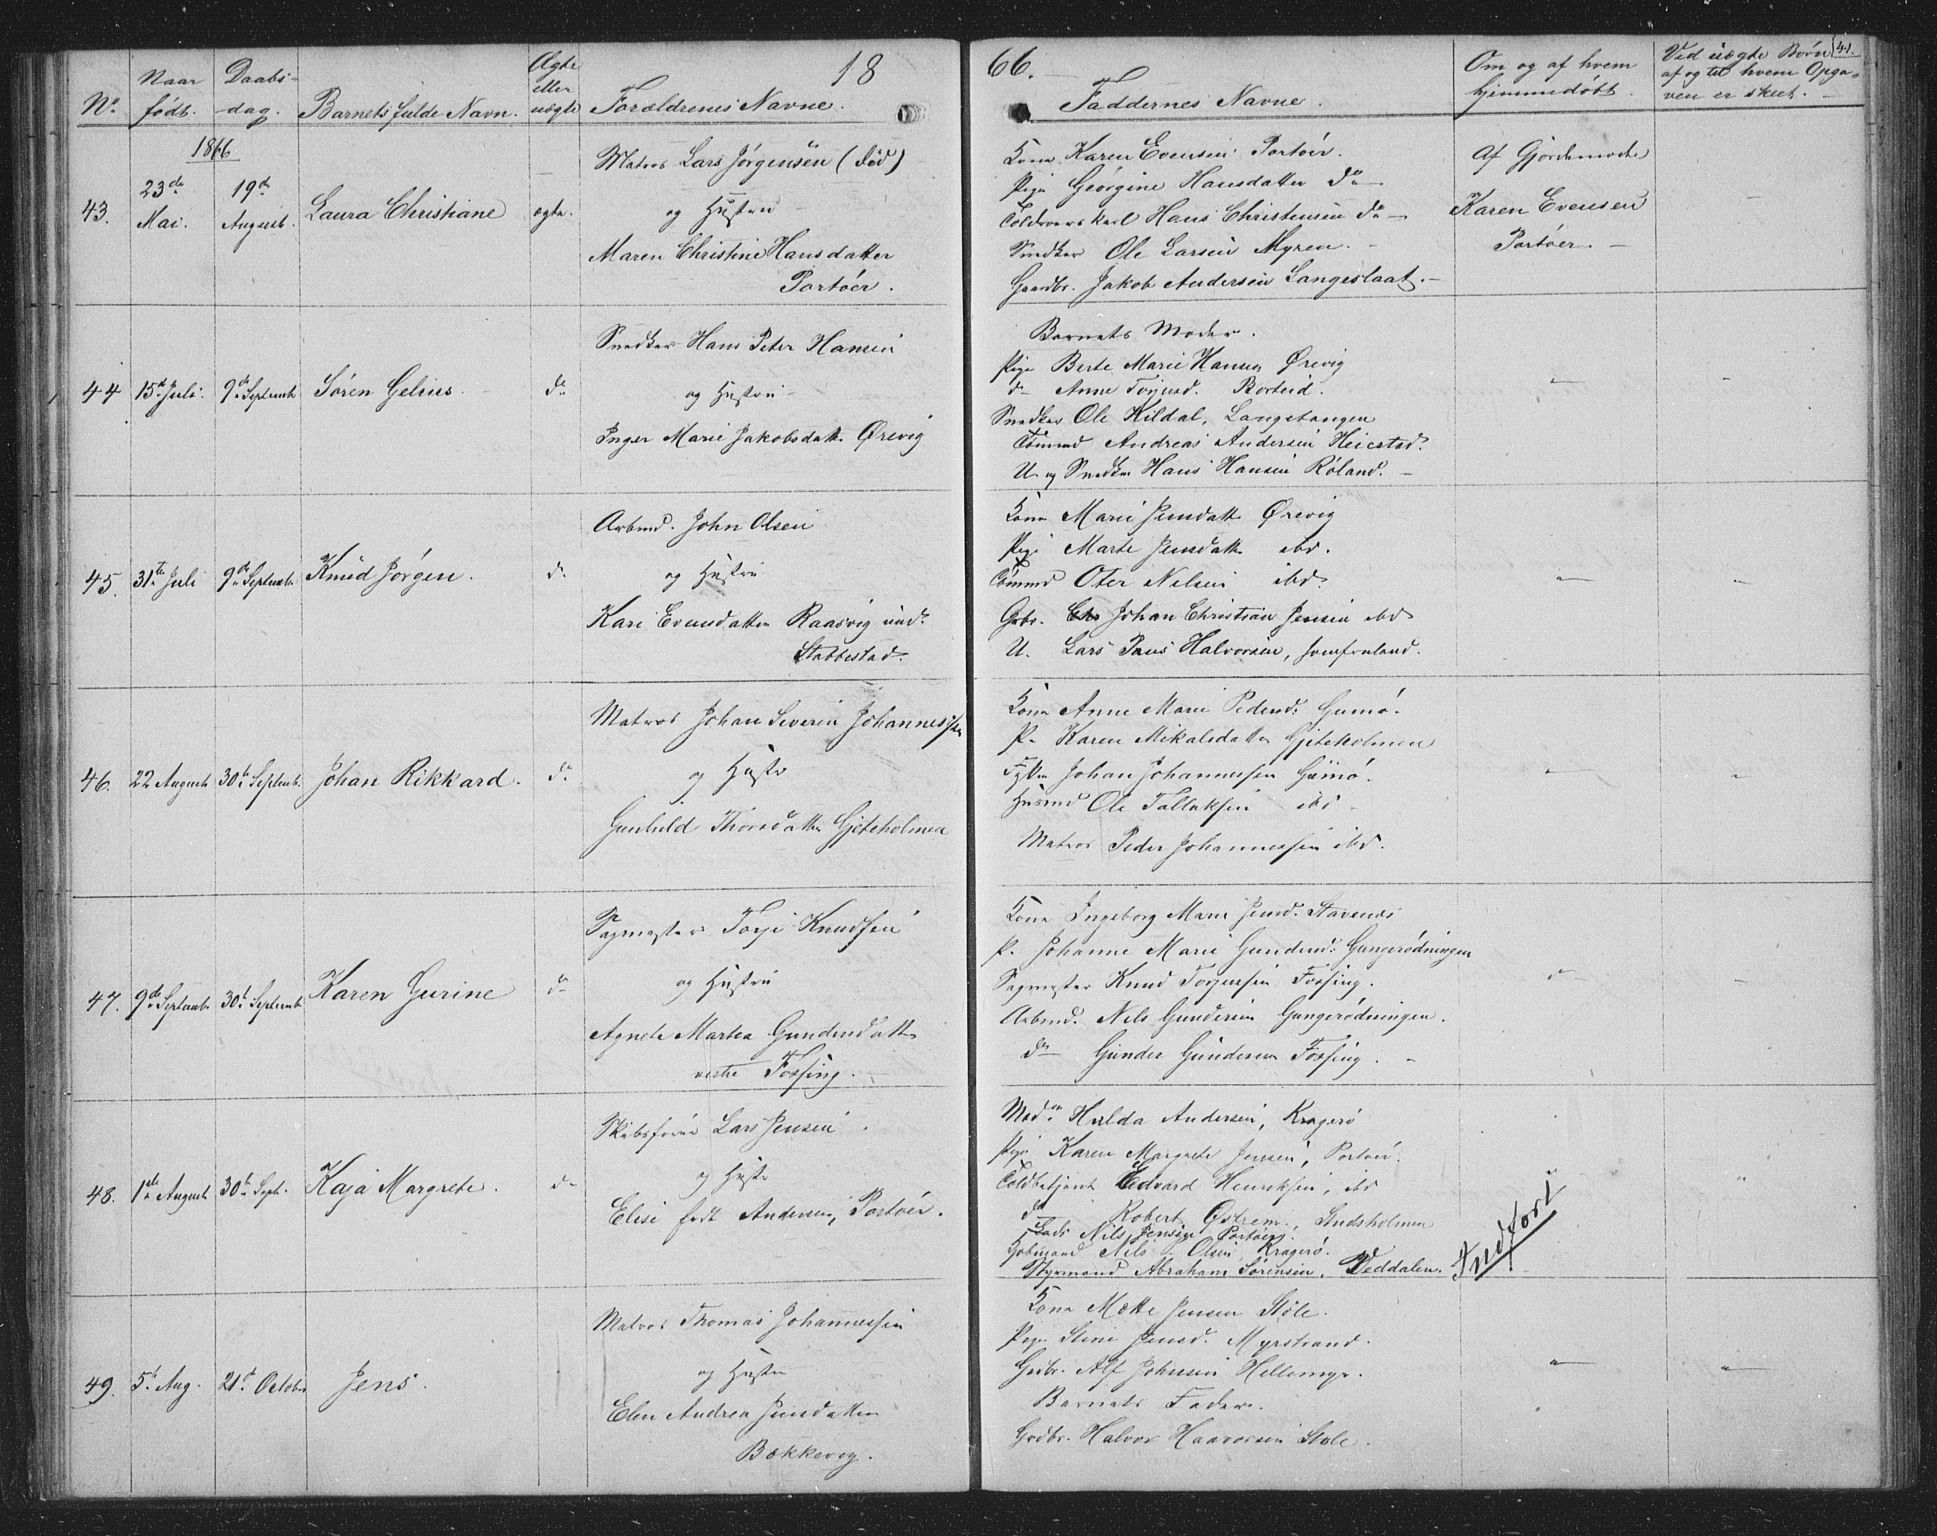 1866.
41.
No. Naar født. Daabsdag. Barnets fulde Navn. Ægte eller uægte Forældrenes Navne. Faddernes Navne. Om og af hvem hjemmedøbt. Ved uægte Børn af og til hvem Opgaven er skeet.
1866
43. 23de Mai. 19de August. Laura Christiane ægte.
Matros Lars Jørgensen (død)
og Hustru
Maren Christine Hansdatter
Portøer.
Kone Karen Evensen Portøer.
Pige Georgine Hansdatter do
Toldroerskarl Hans Christensen do
Snedker Ole Larsen Myren.
Gaardbr. Jakob Andersen Langeslaat.
Af Gjordemoder
Karen Evensen
Portøer.
44 15de Juli. 9de Septemb. Søren Gelius. do
Snedker Hans Peter Hansen
og Hustru
Inger Marie Jakobsdatt. Ørevig
Barnets Moder.
Pige Berte Marie Hansen Ørevig
do Anne Torjusd. Borteid.
Snedker Ole Kildal, Langetangen
Tømmd Andreas Andersen Heiestad.
U. og Snedker Hans Hansen Roland.
45. 31te Juli 9de Septemb. Knud Jørgen. do
Arbmd. John Olsen
og Hustru
Kari Evensdatter Raasvig und.
Stabbestad.
Kone Marie Jensdatt. Ørevig
Pige Marte Jensdatt. ibd.
Tømmd Oter Nilsen ibd.
Grbr. Johan Christian Jensen ibd
U. Lars Paus Halvorsen, Jomfruland.
46. 22 August 30te Septemb. Johan Rikkard. do
Matros Johan Severin Johannessen
og Hustr
Gunhild Thorsdatter Gjeteholmen
Kone Anne Marie Pedersd. Gumø.
P. Karen Mikalsdatter Gjeteholmen
Johan Johannessen Gumø.
Husmd Ole Tallaksen ibd
Matros Peder Johannessen ibd.
47. 9de Septemb. 30te Septemb. Karen Gurine do
Sagmester Torje Knudsen
og Hustru
Agnete Martea Gundersdatter
vestre Fossing.
Kone Ingeborg Marie Jensd. Stavenæs
P. Johanne Marie Gundersd. Gangerødningen
Sagmester Knud Torjussen Fossing.
Arbmd. Nils Gundersen Gangerødningen.
do Gunder Gundersen Fossing.
48. 1de August 30te Sept. Kaja Margrete. do
Skibsfører Lars Jensen
og Hustr
Elise født Andersen, Portøer.
Madm Hulda Andersen, Kragerø
Pige Karen Margrete Jensen, Portøer.
Toldbetjent Edvard Henriksen, ibd
do Robert Østrem, Studsholmen
Lods Nils Jensen Portøer.
Kobmand Nils Olsen Kragerø.
Styrmand Abraham Sørensen, Veddalen.
Indført
49. 5te Aug. 21de Octobr Jens.
Matros Thomas Johannessen
og Hustru
Elen Andrea Jensdatter
Bækkevig.
Kone Mette Jensen Støle.
Pige Stine Jensd. Myrstrand.
Grbr. Alf Johnsen Hellemyr.
Barnets Fader.
Grdbr. Halvor Haavorsen Støle.